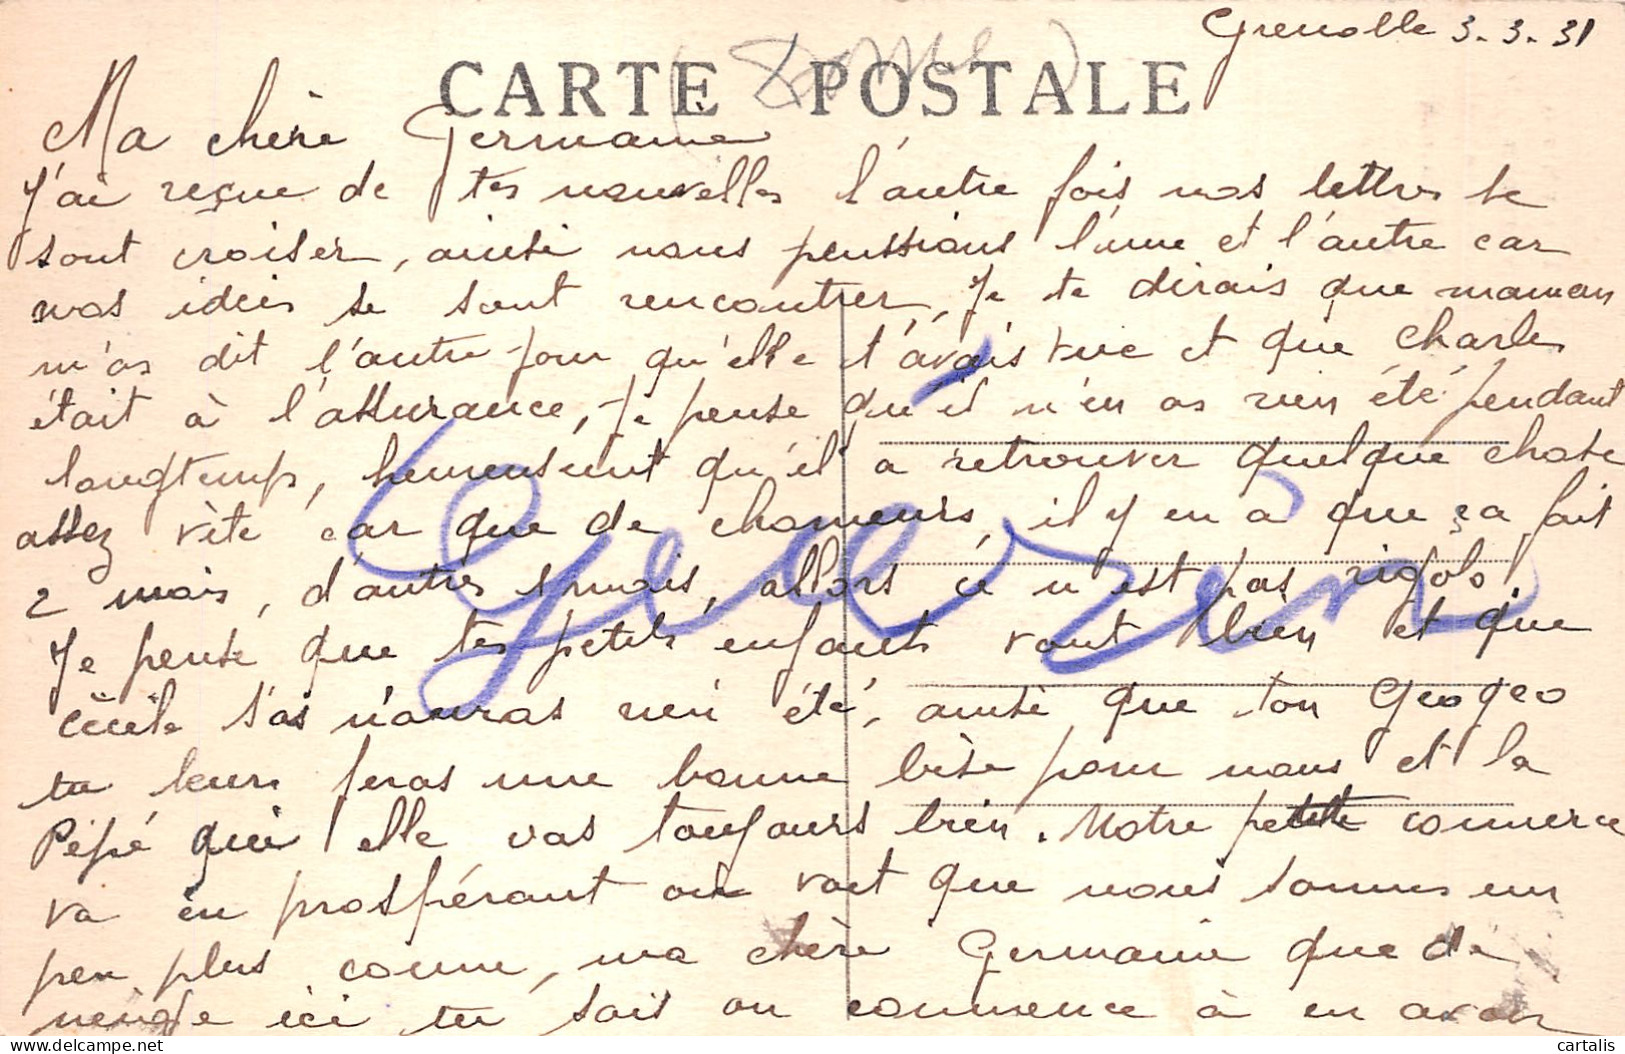 Grenoble 3.3.31
CARTE POSTALE
Ma chère Germaine
J'ai reçue de tes nouvelles l'autre fois nos lettres se
sont croiser, ainsi nous penssions l'une et l'autre car
nos idées se sont rencontrer, Je te dirais que maman
m'as dit l'autre jour qu'elle t'avais vue et que Charles
était à l'assurance, Je pense qu'il n'en as rien été pendant
longtemps, heureusement qu'il a retrouver quelque chose
assez vite car que de chomeurs, il y en a que ça fait
2 mois, d'autres 5 mois, allors ce n'est pas rigolo.
Je pense que tes petits enfants vont bien et que
Cécile s'as n'auras rien été, ainsi que ton Geogeo
tu leurs feras une bonne bise pour nous et la
Pépé qui elle vas toujours bien. Notre petite commerce
va en prospérant on voit que nous sommes un
peu plus connu, ma chère Germaine que de
neige ici tu sais on commence à en avoir
cartalis